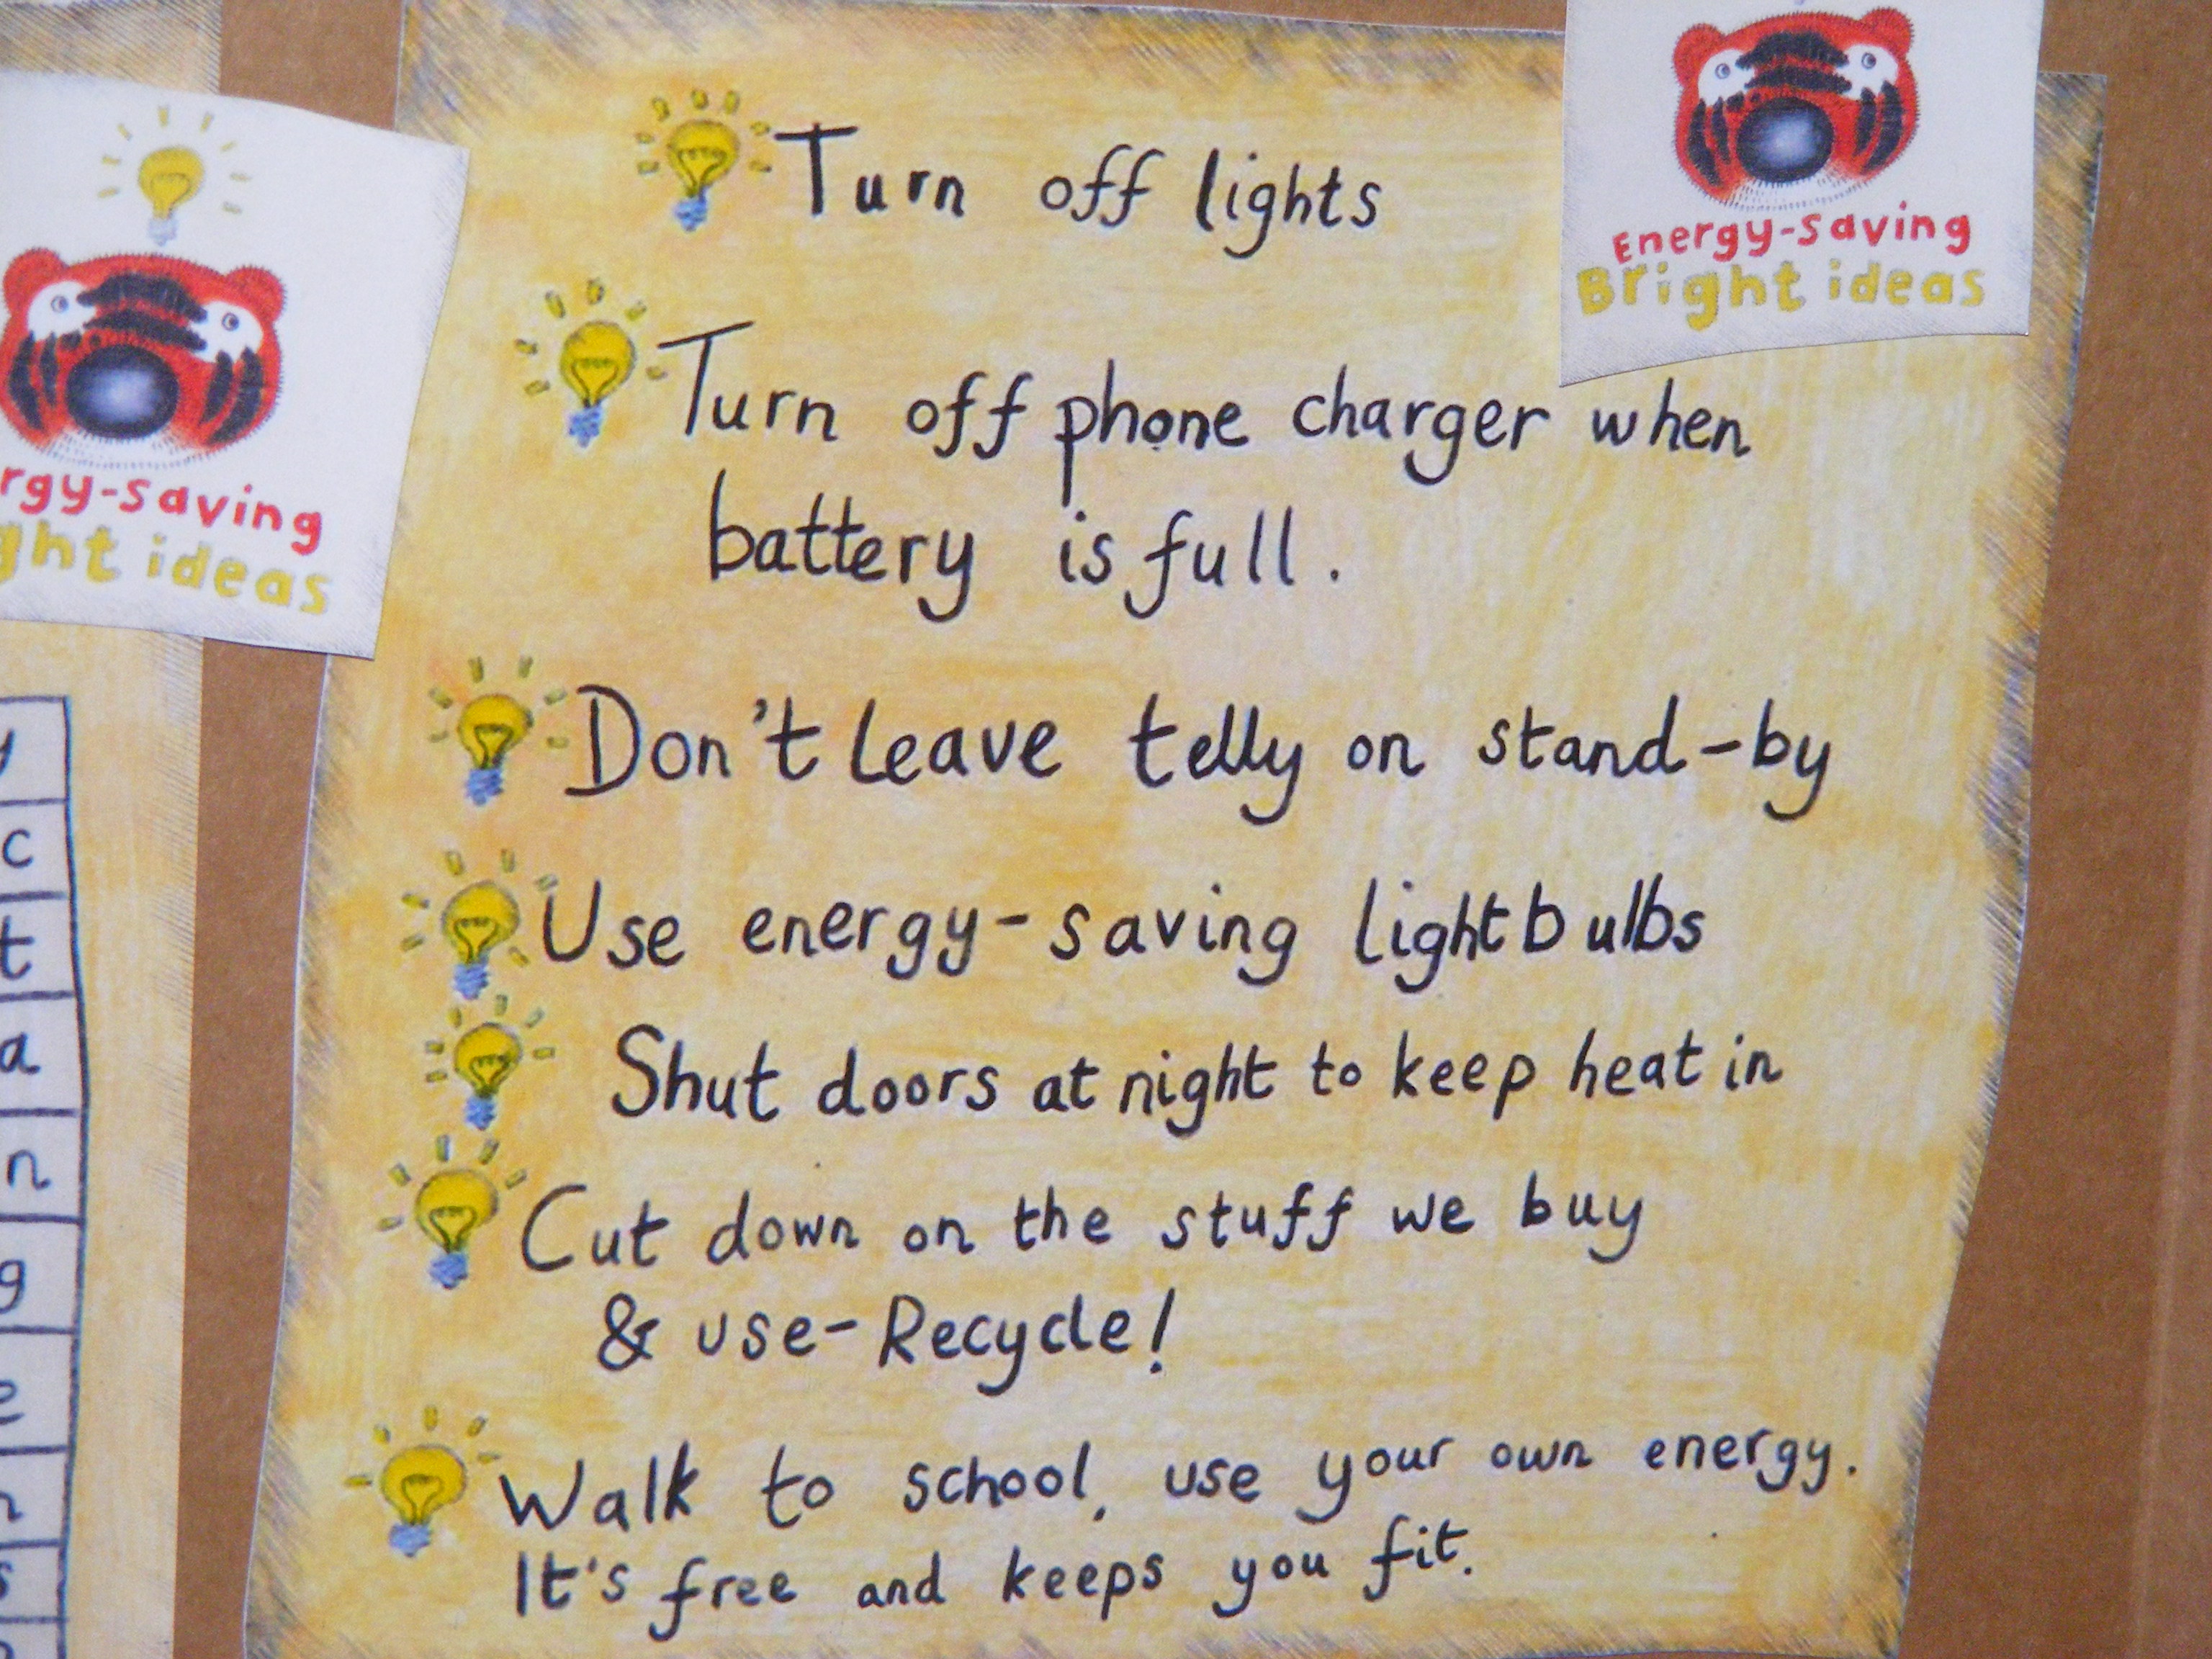 Turn off lights
Turn off phone charger when
battery is full.
Don't leave telly on stand-by
Use energy-saving lightbulbs
Shut doors at night to keep heat in
Cut down on the stuff we buy
& use-Recycle!
Walk to school, use your own energy.
It's free and keeps you fit.
Energy-saving
Bright ideas
rgy-saving
ght ideas
y
c
t
a
n
g
e